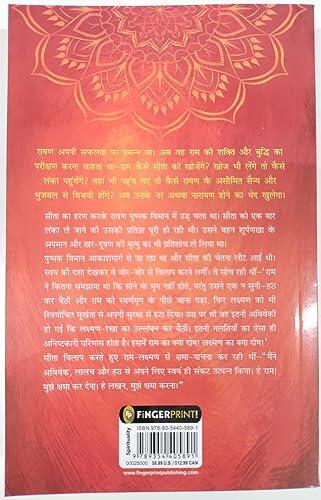 रावण अपनी सफलता पर प्रसन्न था। अब वह राम की शक्ति और बुद्धि का
परीक्षण करना चाहता था—राम कैसे सीता को खोजेंगे? खोज भी लेंगे तो कैसे
लंका पहुंचेंगे? वहां भी पहुंच गए तो कैसे रावण के असीमित सैन्य और
भुजबल से विजयी होंगे? अब उनके नर अथवा नारायण होने का भेद खुलेगा।
सीता का हरण करके रावण पुष्पक विमान में उड़ चला था। सीता को एक बार
लंका ले जाने की उसकी प्रतिज्ञा पूरी हो रही थी। उसने बहन शूर्पणखा के
अपमान और खर-दूषण की मृत्यु का भी प्रतिशोध ले लिया था।
पुष्पक विमान आकाशमार्ग से जा रहा था और सीता की चेतना लौट आई थी।
स्वयं को दशा देखकर वे जोर-जोर से विलाप करने लगीं। वे सोच रही थीं—'राम
ने कितना समझाया था कि सोने के मृग नहीं होते, परंतु उसने एक न सुनी—हठ
कर बैठी और राम को स्वर्णमृग के पीछे जाना पड़ा, फिर लक्ष्मण को भी
स्त्रियोचित मूर्खता से अपनी सुरक्षा से हटा दिया। उस पर भी वह इतनी अविवेकी
हो गई कि लक्ष्मण-रेखा का उल्लंघन कर बैठी। इतनी गलतियों का ऐसा ही
अनिष्टकारी परिणाम होता है। इसमें राम का क्या दोष! लक्ष्मण का क्या दोष!'
सीता विलाप करते हुए राम-लक्ष्मण से क्षमा-याचना कर रही थीं—"मैंने
अविवेक, लालच और हठ से अपने लिए स्वयं ही संकट उत्पन्न किया। हे राम!
मुझे क्षमा कर देना। हे लखन, मुझे क्षमा करना।"
FP
FiNGERPRINT!
Spirituality
ISBN 978-93-5440-589-1
9 789354 405891
00025000 $8.99 U.S. / $12.99 CAN
www.fingerprintpublishing.com